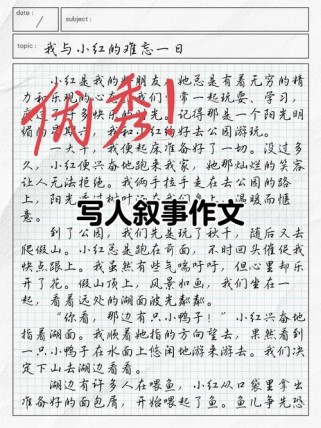 date:
subject:
topic: 我与小红的难忘一日
小红是我的好朋友，她总是有着无穷的精
力和乐观的心
们常一起玩耍、学习，
多快乐的
记得那是一个阳光明
媚的星期
我和小红约好去公园游玩。
一大早，我便起床准备好了一切。没过多
久，小红便兴奋地跑来我家，她那灿烂的笑容
让人无法拒绝。我俩手拉手走在去公园的路
上，阳光
温暖而惬
意。
到了公园，我们先是玩了秋千，随后又去
爬假山。小红总是跑在前面，不时回头催促我
快点跟上。我虽然有些气喘吁吁，但心里却乐
开了花。假山顶上，风景如画，我们坐在一
起，看着远处的湖面波光粼粼。
“你看，那边有只小鸭子！”小红兴奋地
指着湖面。我顺着她指的方向望去，果然看到
一只小鸭子在水面上悠闲地游来游去。我们决
定下山去湖边看看。
湖边有许多人在喂鱼，小红从口袋里拿出
准备好的面包屑，开始喂起了鱼。鱼儿争先恐
优秀！
写人叙事作文